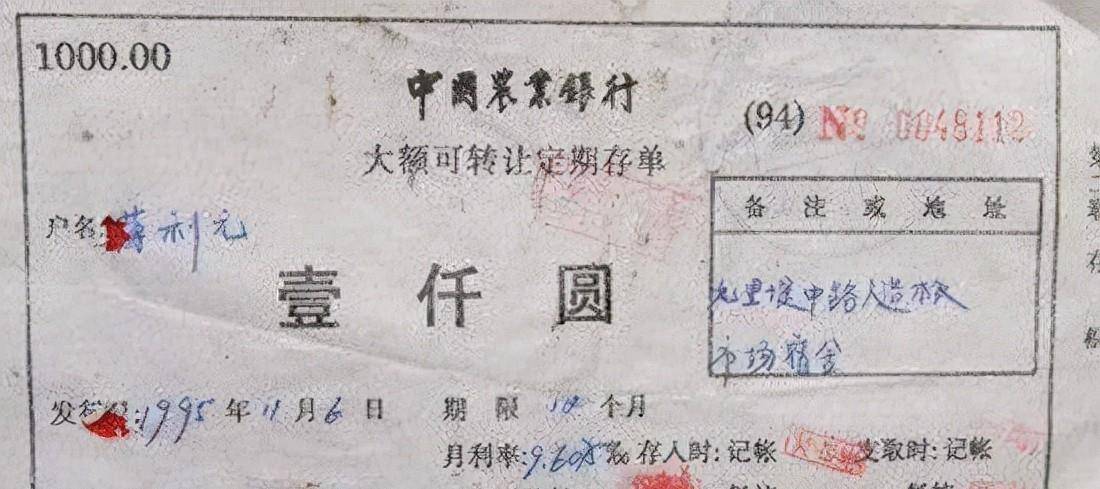 1000.00
中國農業銀行
(94) № 0048112
大额可转让定期存单
备注或地址
户名: 利元
壹仟圆
九里堤中路人造板
市场宿舍
发 日:1995年11月6日 期限 个月
月利率:9. ‰ 存入时:记帐 支取时:记帐